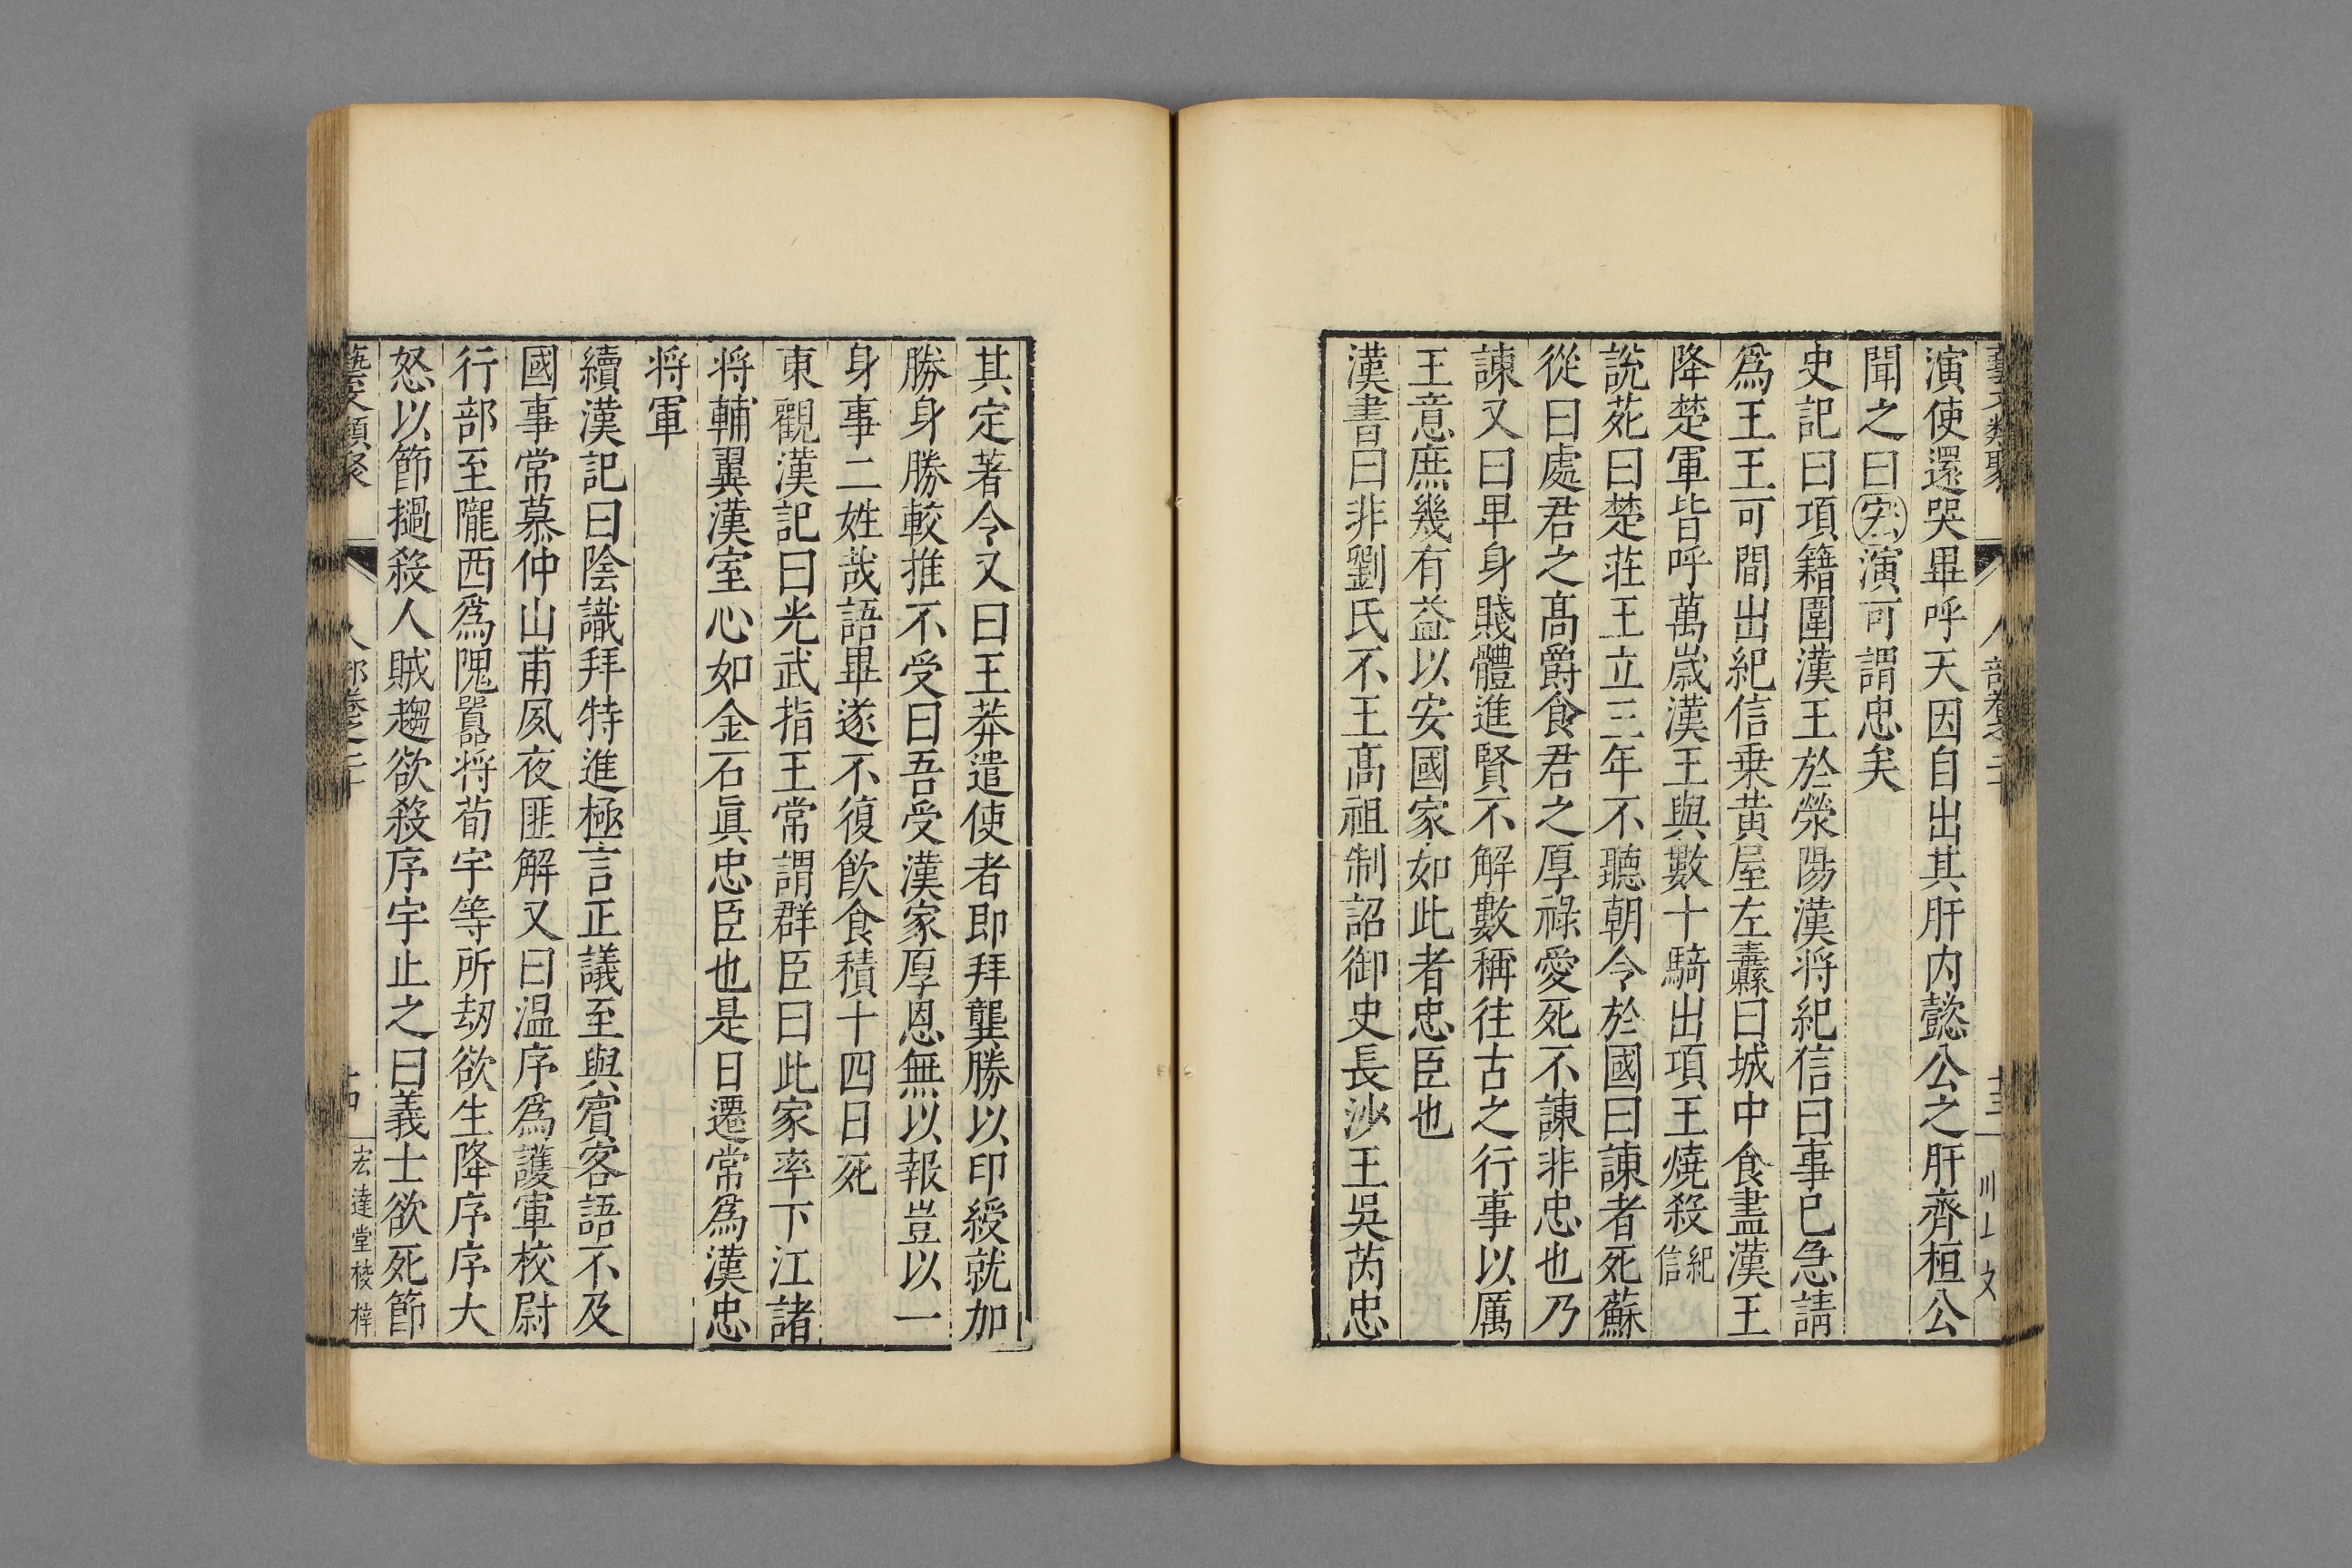 演使還哭畢呼天因自出其肝内懿公之肝齊桓公
聞之曰宏演可謂忠矣
史記曰項籍圍漢王於滎陽漢将紀信曰事已急請
爲王王可間出紀信乗黄屋左纛曰城中食盡漢王
降楚軍皆呼萬歳漢王與數十騎出項王燒殺紀信
說苑曰楚莊王立三年不聽朝令於國曰諫者死蘇
從曰處君之高爵食君之厚祿愛死不諫非忠也乃
諫又曰卑身賤體進賢不解數稱往古之行事以厲
王意庶幾有益以安國家如此者忠臣也
漢書曰非劉氏不王高祖制詔御史長沙王吳芮忠
其定著令又曰王莽遣使者即拜龔勝以印綬就加
勝身勝較推不受曰吾受漢家厚恩無以報豈以一
身事二姓哉語畢遂不復飲食積十四日死
東觀漢記曰光武指王常謂群臣曰此家率下江諸
将輔翼漢室心如金石眞忠臣也是日遷常爲漢忠
将軍
續漢記曰陰識拜特進極言正議至與賓客語不及
國事常慕仲山甫夙夜匪解又曰温序爲護軍校尉
行部至隴西爲隗囂将荀宇等所劫欲生降序序大
怒以節撾殺人賊趨欲殺序宇止之曰義士欲死節
宏達堂校梓